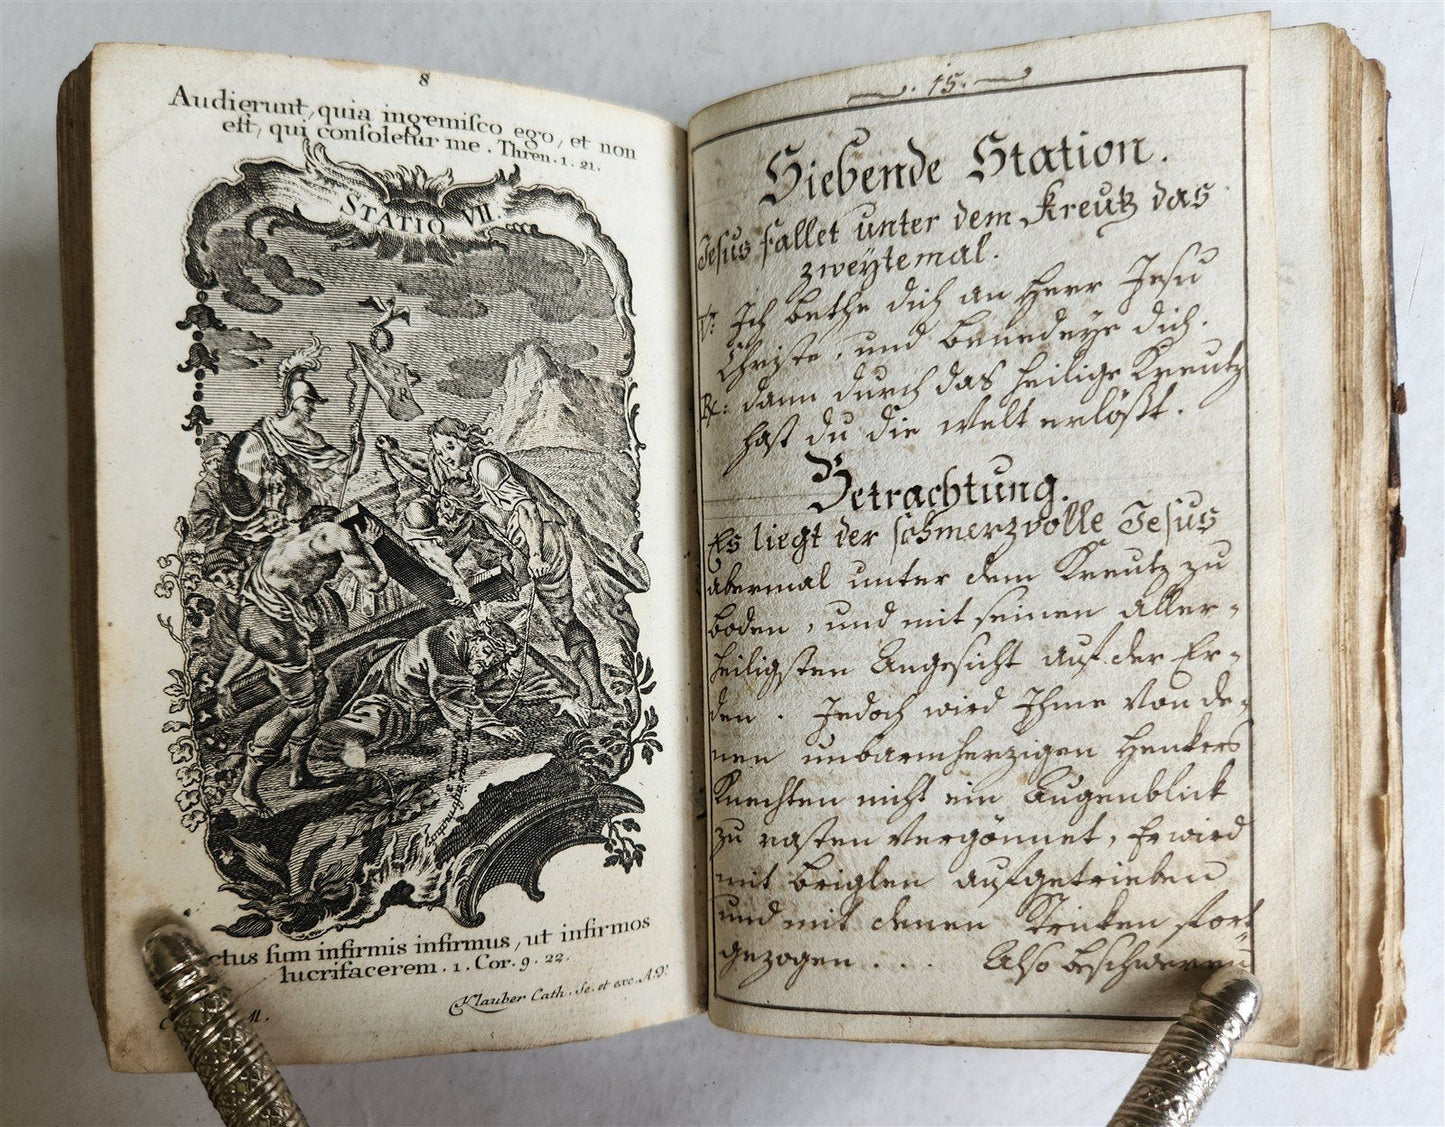 8
Audierunt, quia ingemiſco ego, et non
eſt, qui conſoletur me. Thren. 1. 21.
STATIO VII.
ctus ſum infirmis infirmus, ut infirmos
lucrifacerem. 1. Cor. 9. 22.
Klauber Cath. Sc. et exc. A.V.
15.
Siebende Station.
Jesus fallet unter dem Kreutz das
zweytemal.
V: Ich bethe dich an Herr Jesu
Christe, und benedeye dich.
R: dann durch das heilige Kreutz
hast du die Welt erlößt.
Betrachtung.
Es liegt der schmerzvolle Jesus
abermal unter dem Kreutz zu
boden, und mit seinen aller-
heiligsten Angesicht auf der Er-
den. Jedoch wird Ihme von de-
nen unbarmherzigen Henkers
Knechten nicht ein Augenblick
zu rasten vergönnet, Er wird
mit briglen aufgetrieben
und mit denen Stricken fort
gezogen . . . . Also beschweren